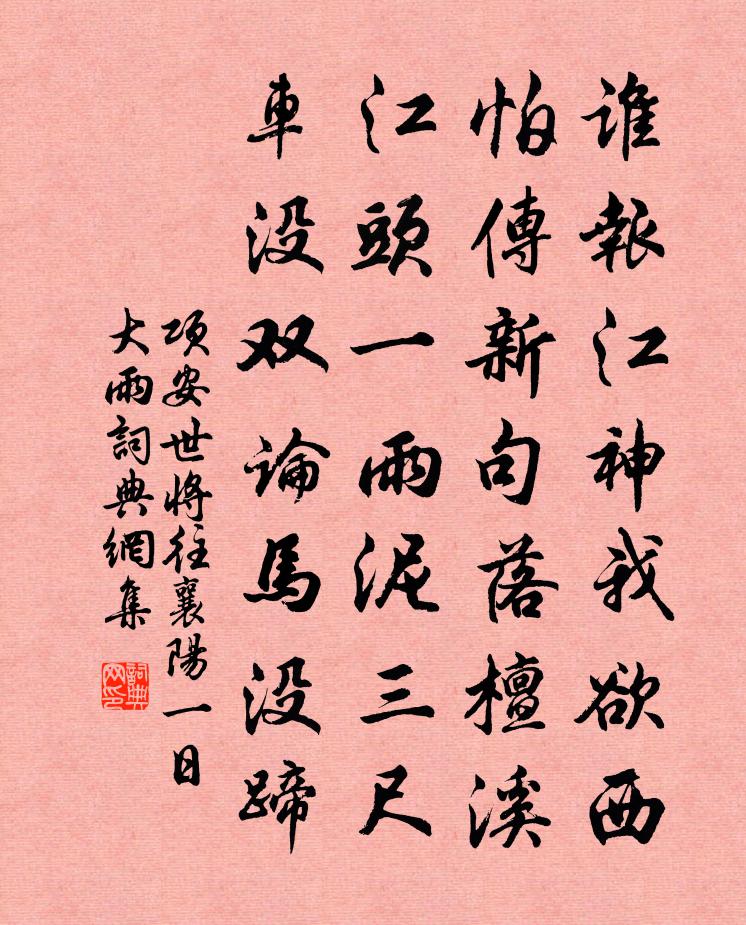 誰報江神我欲西
怕傳新句落檀溪
江頭一雨泥三尺
車没双論馬没蹄
項安世將往襄陽一日
大雨詞典網集
詞典网印